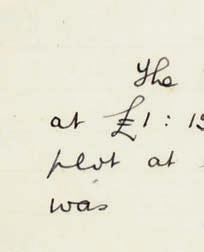 The
at £1 : 15
plot at
was